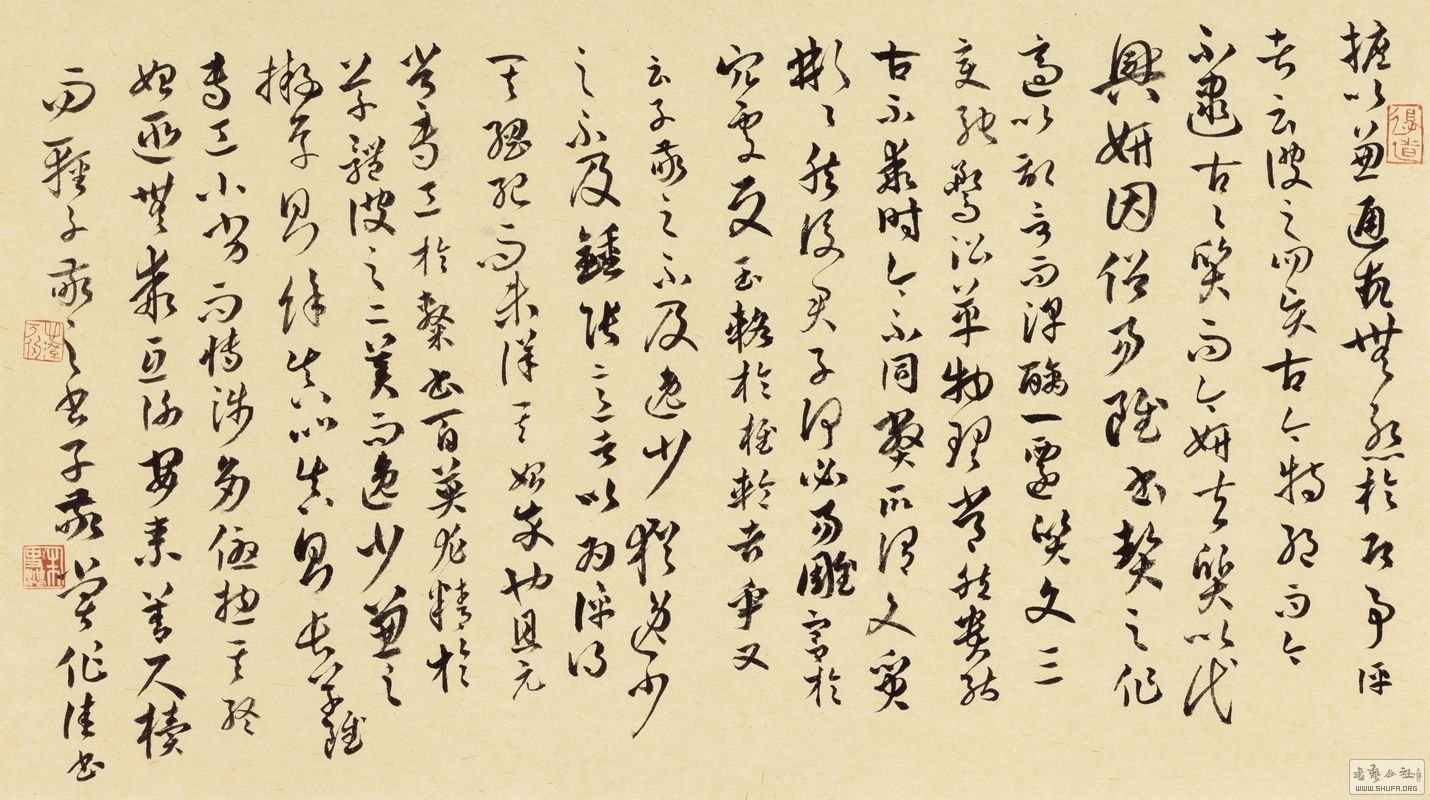 攄以兼通故無慙於即事評
者云彼之四賢古今特絕而今
不逮古々質而今妍夫質以代
興妍因俗易雖書契之作
適以記言而淳醨一遷質文三
變馳騖沿革物理常然貴能
古不乖時今不同弊所謂文質
彬々然後君子何必易雕宮於
穴處反玉輅於椎輪者乎又
云子敬之不及逸少猶逸少
之不及鍾張意者以為評得
其綱紀而未詳其始卒也且元
常專工於隸書百英尤精於
草體彼之二美而逸少兼之
擬草則餘真比真則長草雖
專工小劣而博涉多優揔其終
始匪無乖互謝安素善尺牘
而輕子敬之書子敬嘗作佳書
WWW.SHUFA.ORG